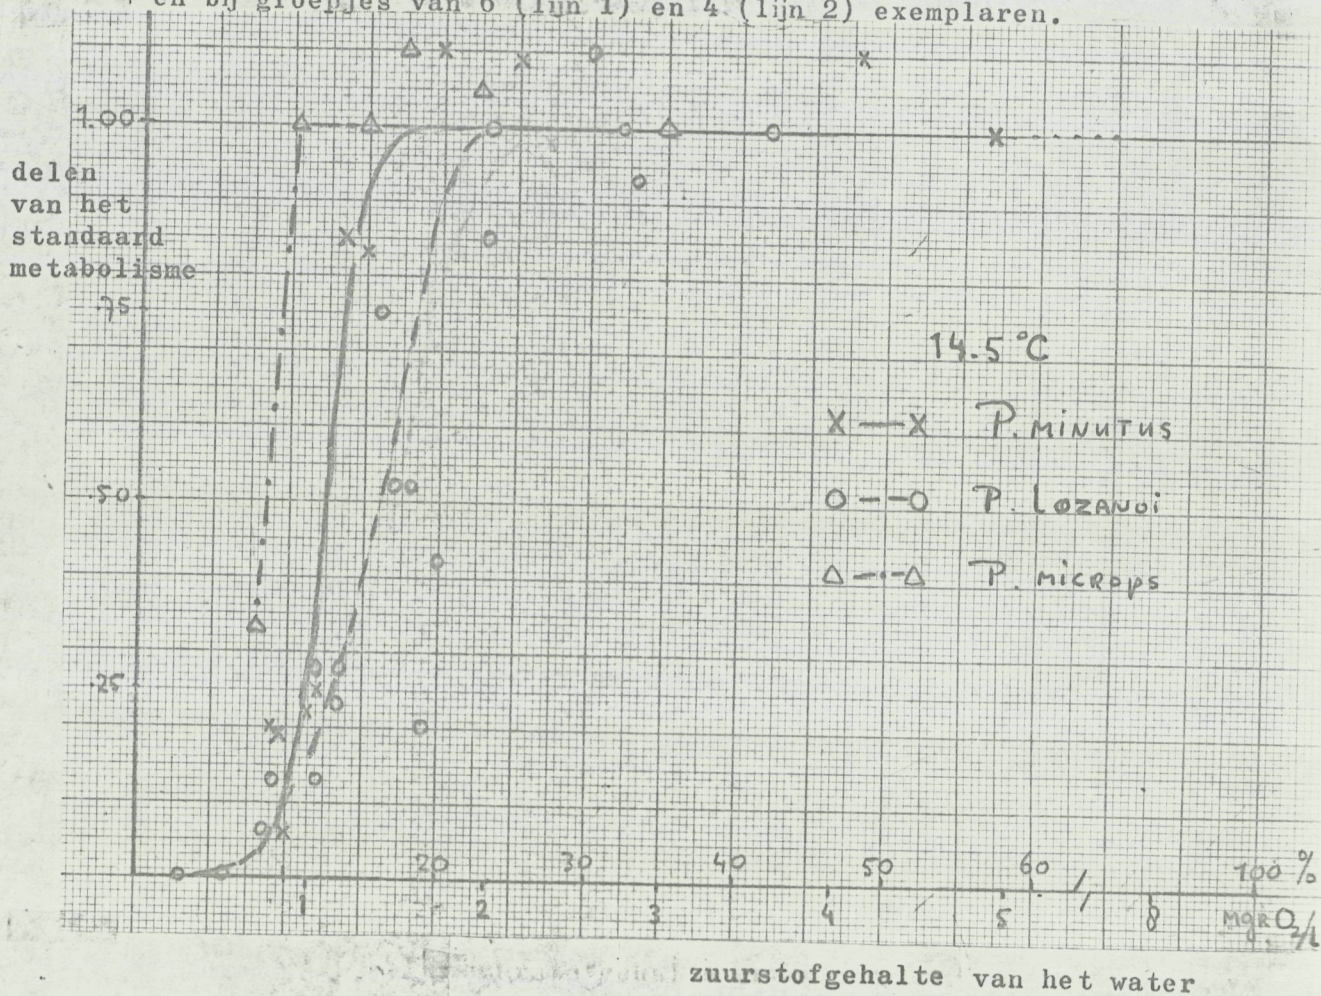 en bij groepjes van 6 (lijn 1) en 4 (lijn 2) exemplaren.
1.00
delen
van het
standaard
metabolisme
.75
14.5 °C
X — X P. MINUTUS
.50
O - - O P. LOZANOI
Δ - · - Δ P. MICROPS
.25
20 30 40 50 60 100 %
1 2 3 4 5 8 MGR O2/L
zuurstofgehalte van het water